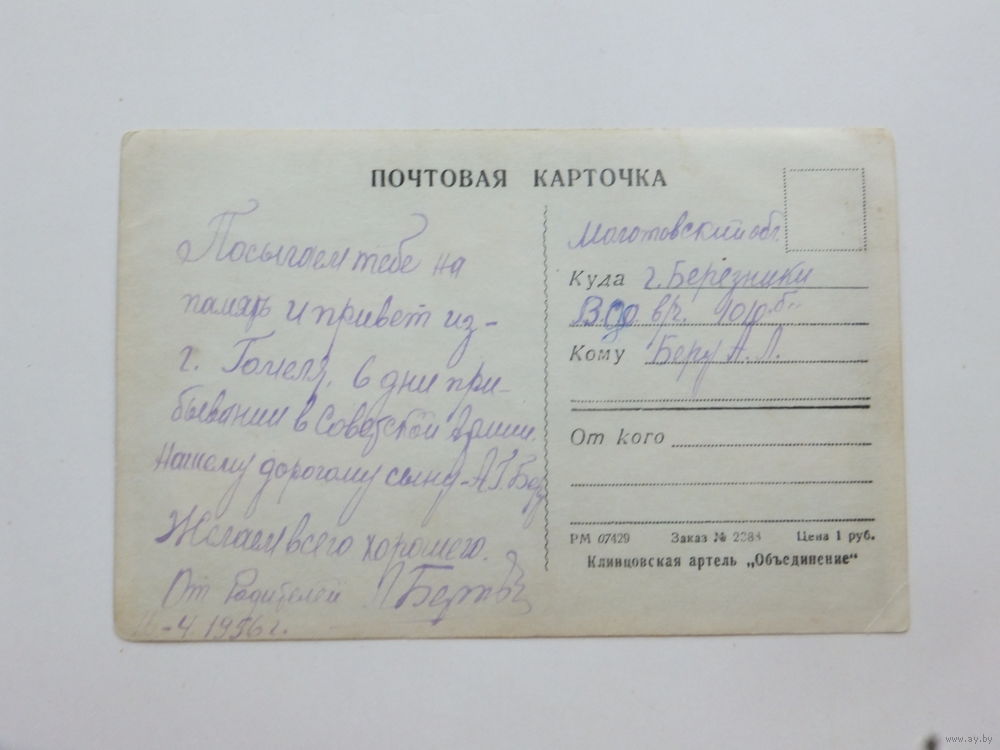 ПОЧТОВАЯ КАРТОЧКА
Посылаем тебе на
память и привет из-
г. Гомеля, в дни при-
бывании в Советской Армии.
Нашему дорогому сыну - А.Г. Беру
Желаем всего хорошего.
От Родителей
-4 1956 г.
Молотовский обл.
Куда г. Березники
в/ч.
Кому Беру А. Л.
От кого
РМ 07429 Заказ № 2288 Цена 1 руб.
Клинцовская артель „Объединение"
www.ay.by